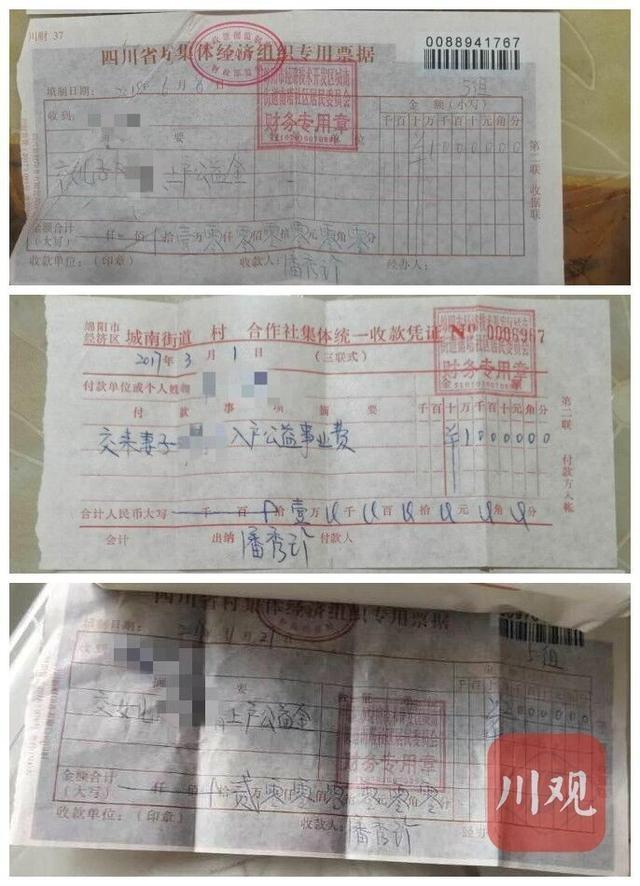 川财 37
四川省村集体经济组织专用票据
0088941767
填制日期：
5组
收到
金额（小写）
摘要
千百十万千百十元角分
财务专用章
¥1000000
上户公益金
金额合计
（大写） 仟佰拾壹万零仟零佰零拾零元零角零分
收款单位：（印章） 收款人：潘秀珍 经办人：
第二联 收据联
绵阳市
经济区 城南街道 村 合作社集体统一收款凭证 №0086967
2017年3月1日 （三联式）
财务专用章
付款单位或个人姓名
付款事项摘要 千百十万千百十元角分
交来妻子 入户公益事业费 ¥1000000
合计人民币大写 千百拾壹万 千 百 拾 元 角 分
会计 出纳 潘秀珍 付款人
第二联 付款方入帐
四川省村集体经济组织专用票据
填制日期：
5组
收到
摘要
千百十万千百十元角分
交女儿 上户公益金
财务专用章
金额合计
（大写） 仟佰拾贰万零仟零佰零拾零元零角零分
收款单位：（印章） 收款人：潘秀珍 经办
川观